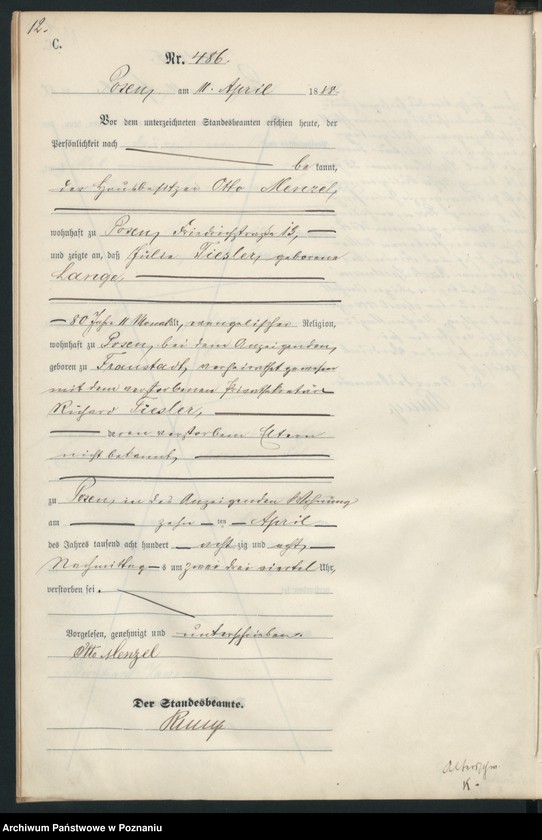 12.
C.
Nr. 486.
Posen, am 11. April 1888.
Vor dem unterzeichneten Standesbeamten erschien heute, der
Persönlichkeit nach
be kannt,
der Hausbesitzer Otto Menzel,
wohnhaft zu Posen, Friedrichstraße 13,
und zeigte an, daß Julie Tiesler, geborene
Lange,
80 Jahr 11 Monat alt, evangelischer Religion,
wohnhaft zu Posen, bei dem Anzeigenden,
geboren zu Fraustadt, verheirathet gewesen
mit dem verstorbenen Privatsekretär
Richard Tiesler,
deren verstorbenen Eltern
nicht bekannt,
zu Posen, in des Anzeigenden Wohnung
am zehn ten April
des Jahres tausend acht hundert acht zig und acht,
Nachmittag s um zwei drei viertel Uhr,
verstorben sei.
Vorgelesen, genehmigt und unterschrieben.
Otto Menzel
Der Standesbeamte.
K.
Archiwum Państwowe w Poznaniu